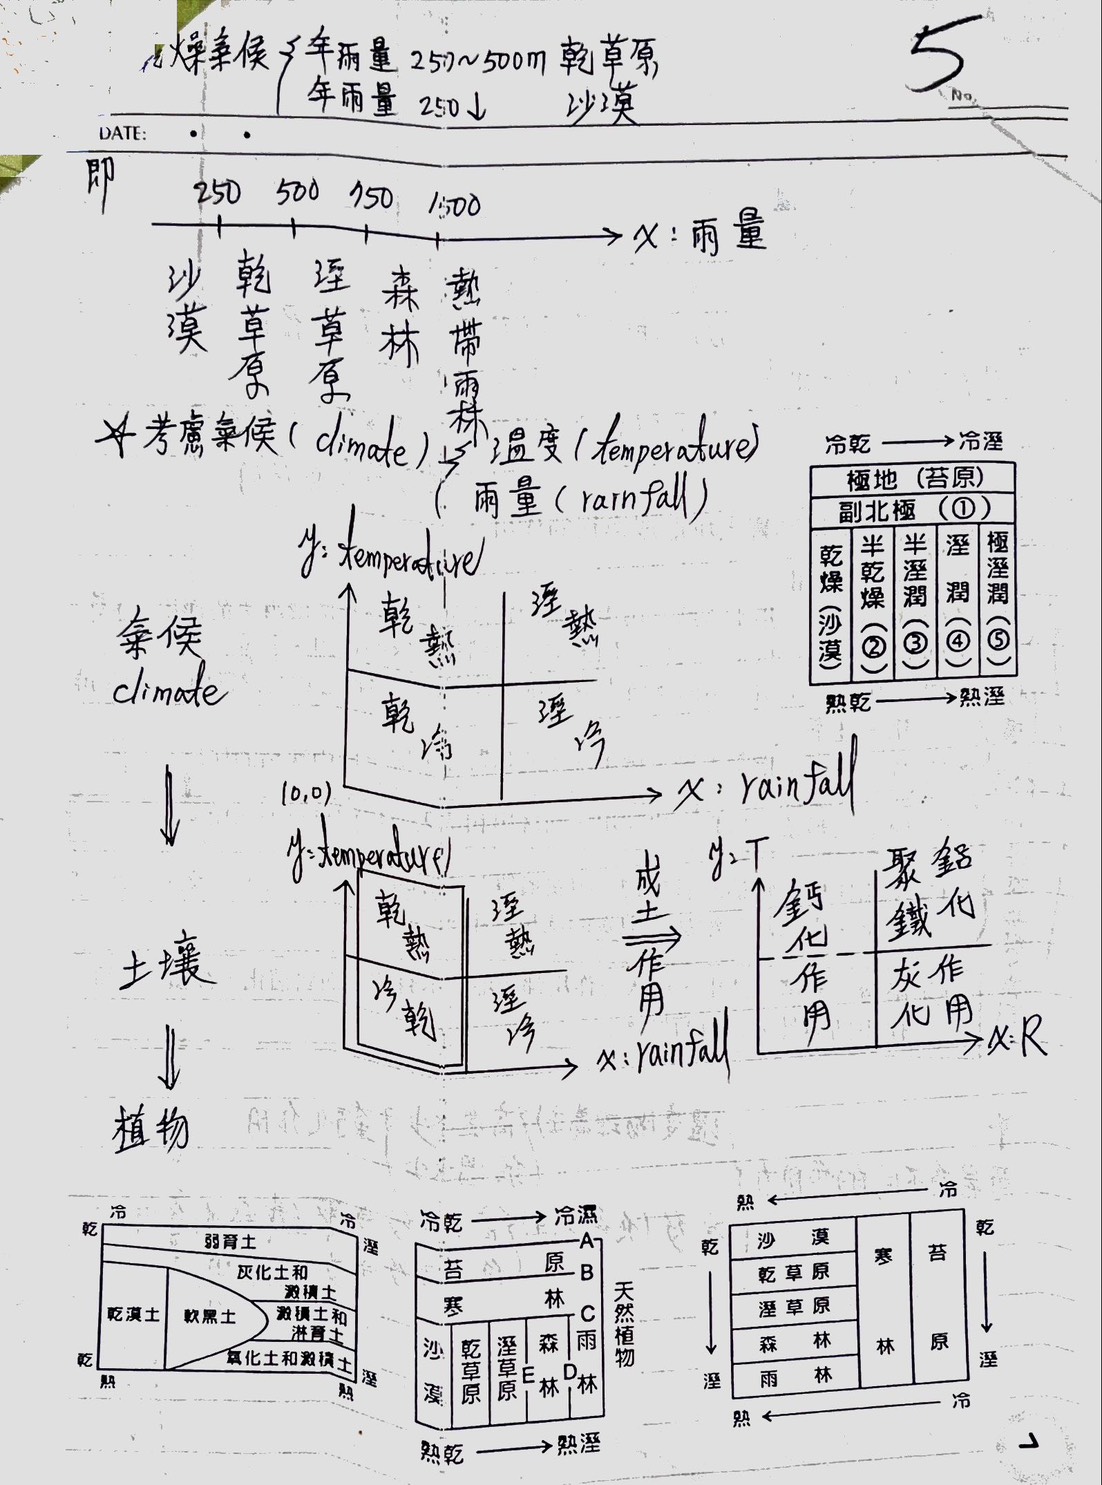 燥氣候 年雨量 250~500m 乾草原
年雨量 250↓ 沙漠
5
No.
DATE:
即
250 500 750 1500
x:雨量
沙漠
乾草原
溼草原
森林
熱帶雨林
☆考慮氣候(climate) 溫度(temperature)
雨量(rainfall)
冷乾→冷溼
極地(苔原)
副北極(①)
乾燥(沙漠)
半乾燥(②)
半溼潤(③)
溼潤(④)
極溼潤(⑤)
熱乾→熱溼
氣候
climate
y:temperature
乾熱 溼熱
乾冷 溼冷
(0,0)
x:rainfall
土壤
y:temperature
乾熱 溼熱
冷乾 溼冷
x:rainfall
成土作用
y:T
鈣化作用
聚鐵鋁化
灰化作用
x:R
植物
冷 冷
乾 溼
弱育土
灰化土和
澱積土
乾漠土 軟黑土
澱積土和
淋育土
氧化土和澱積土
乾 溼
熱 熱
冷乾→冷濕
苔原
寒林
A
B
C
D
E
沙漠
乾草原
溼草原
森林
雨林
天然植物
熱乾→熱溼
熱←冷
乾→溼
沙漠
乾草原
溼草原
森林
雨林
寒林
苔原
乾→溼
熱←冷